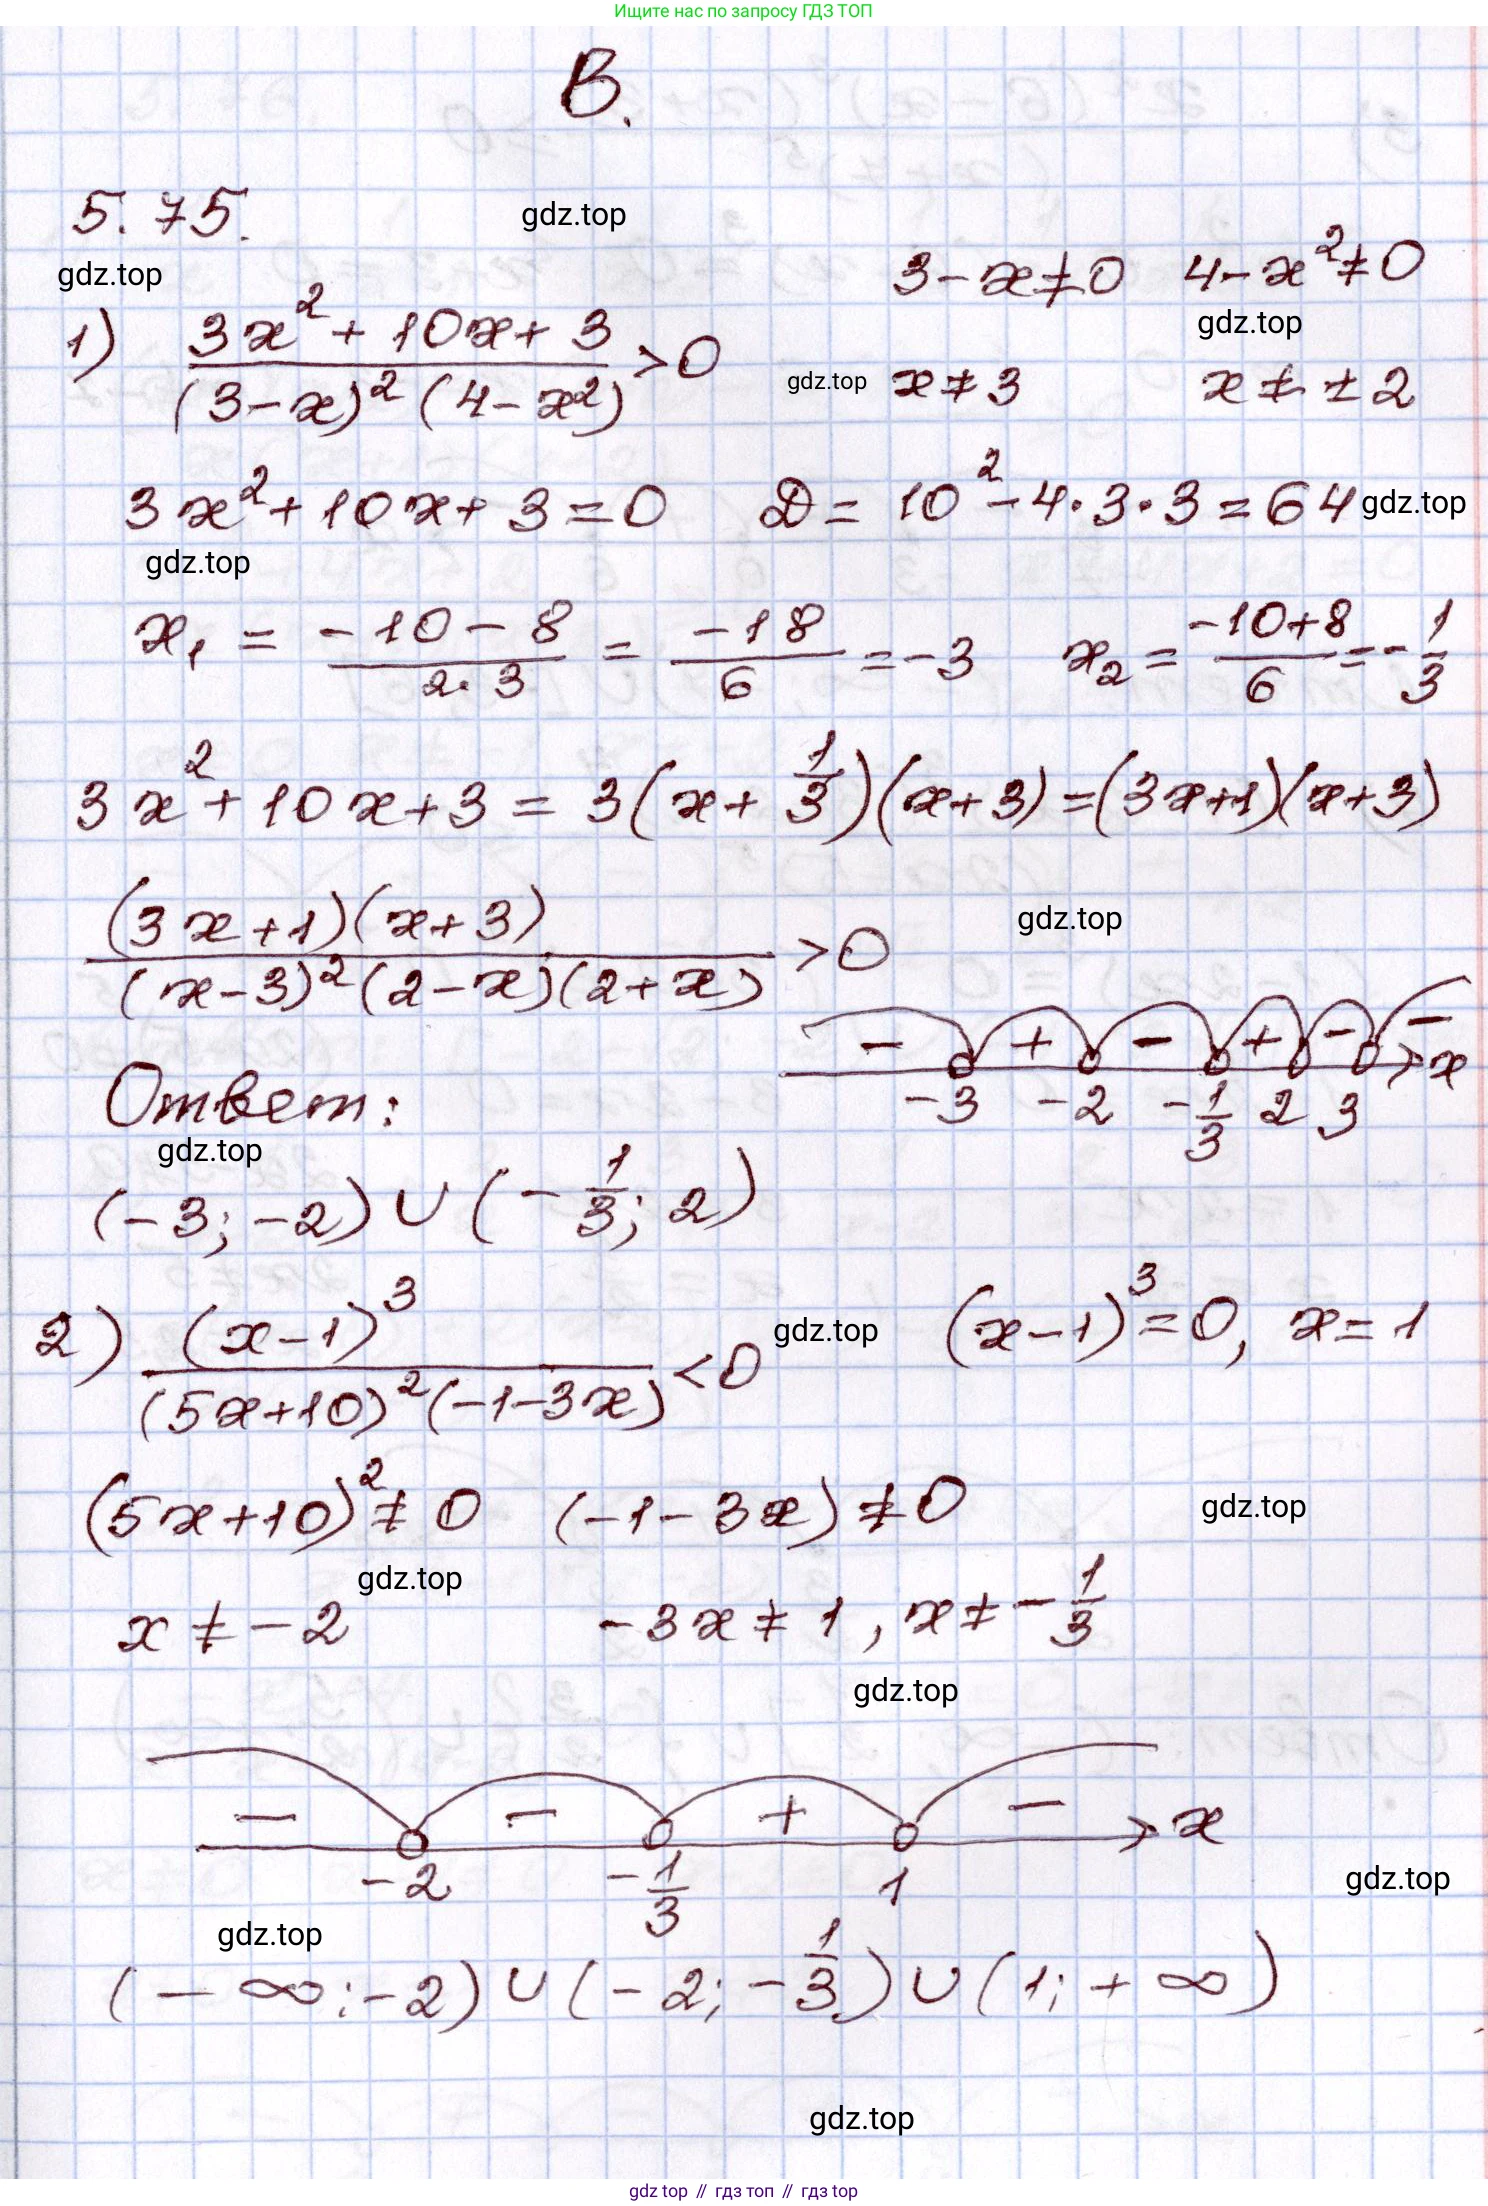 Ищите нас по запросу ГДЗ ТОП
В.
5.75.
gdz.top
gdz.top
3-x≠0 4-x²≠0
gdz.top
1) (3x²+10x+3)/((3-x)²(4-x²)) >0
gdz.top
x≠3 x≠±2
3x²+10x+3=0 D=10²-4·3·3=64
gdz.top
gdz.top
x₁ = (-10-8)/(2·3) = (-18)/6 = -3 x₂ = (-10+8)/6 = -1/3
3x²+10x+3 = 3(x+1/3)(x+3) = (3x+1)(x+3)
((3x+1)(x+3))/((x-3)²(2-x)(2+x)) >0
gdz.top
- + - + - - x
-3 -2 -1/3 2 3
Ответ:
gdz.top
(-3; -2) ∪ (-1/3; 2)
2) (x-1)³/((5x+10)²(-1-3x)) <0
gdz.top
(x-1)³=0, x=1
(5x+10)²≠0 (-1-3x)≠0
gdz.top
gdz.top
x≠-2 -3x≠1, x≠-1/3
gdz.top
- - + - x
-2 -1/3 1
gdz.top
gdz.top
(-∞;-2) ∪ (-2; -1/3) ∪ (1; +∞)
gdz.top
gdz top // гдз топ // гдз top